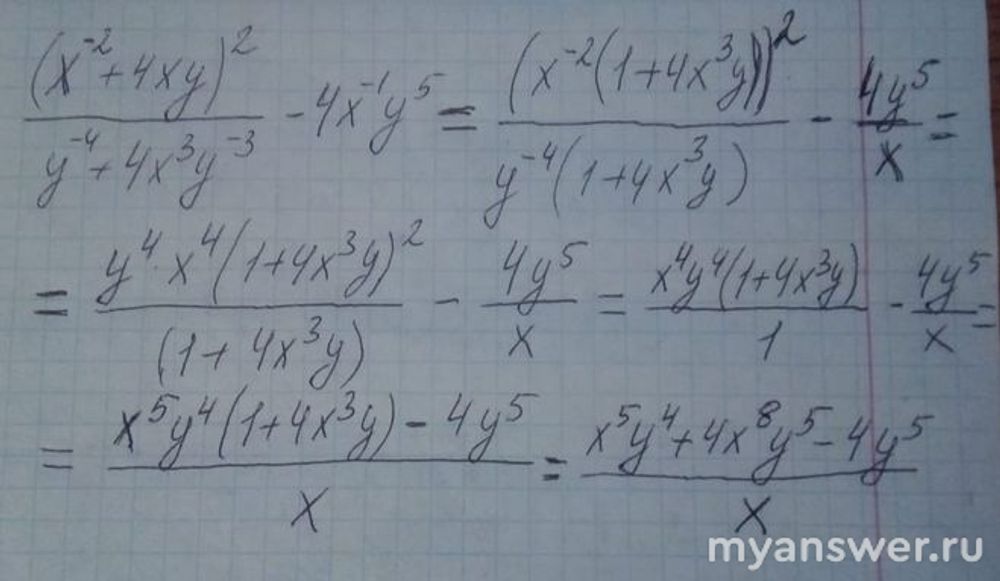 (x⁻²+4xy)²/(y⁻⁴+4x³y⁻³) - 4x⁻¹y⁵ = (x⁻²(1+4x³y))²/(y⁻⁴(1+4x³y)) - 4y⁵/x =
= y⁴x⁴(1+4x³y)²/(1+4x³y) - 4y⁵/x = x⁴y⁴(1+4x³y)/1 - 4y⁵/x =
= (x⁵y⁴(1+4x³y)-4y⁵)/x = (x⁵y⁴+4x⁸y⁵-4y⁵)/x
myanswer.ru